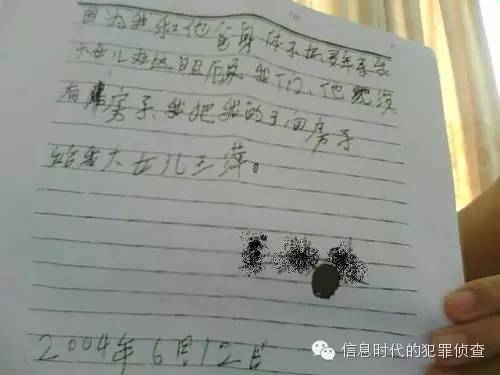 因为我和他爸身体不好长年来是
大女儿 照顾我们、他现没
有 房子我把我的三间房子
给我大女儿王萍。
2004年6月12日
信息时代的犯罪侦查